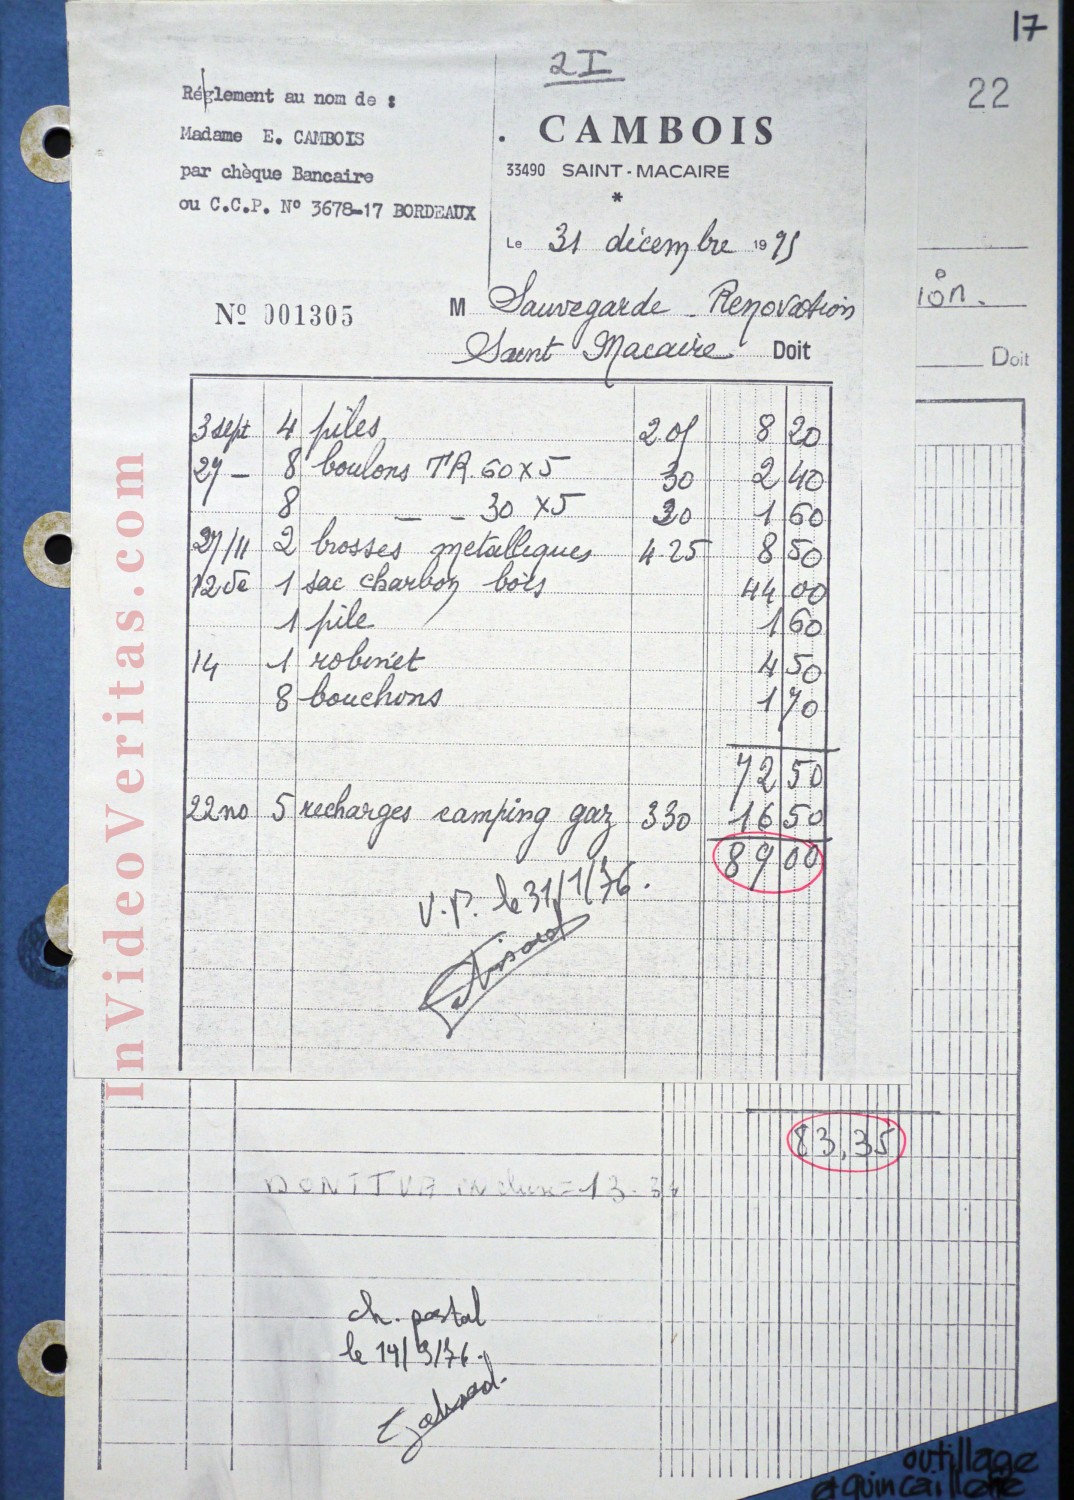 17
22
2I
Réglement au nom de :
Madame E. CAMBOIS
par chèque Bancaire
ou C.C.P. Nº 3678-17 BORDEAUX
. CAMBOIS
33490 SAINT-MACAIRE
*
Le 31 décembre 1975
Nº 001305
M Sauvegarde - Renovation
Saint Macaire Doit
ion.
Doit
3 sept 4 piles 2 05 8 20
27 - 8 boulons TR 60x5 30 2 40
8 - - 30 x5 20 1 60
27/11 2 brosses metalliques 4 25 8 50
12 de 1 sac charbon bois 44 00
1 pile 1 60
14 1 robinet 4 50
8 bouchons 1 70
72 50
22 no 5 recharges camping gaz 3 30 16 50
89 00
V.P. le 31/1/76.
83,35
ch. postal
le 14/9/76.
outillage
et quincaillerie
InVideoVeritas.com